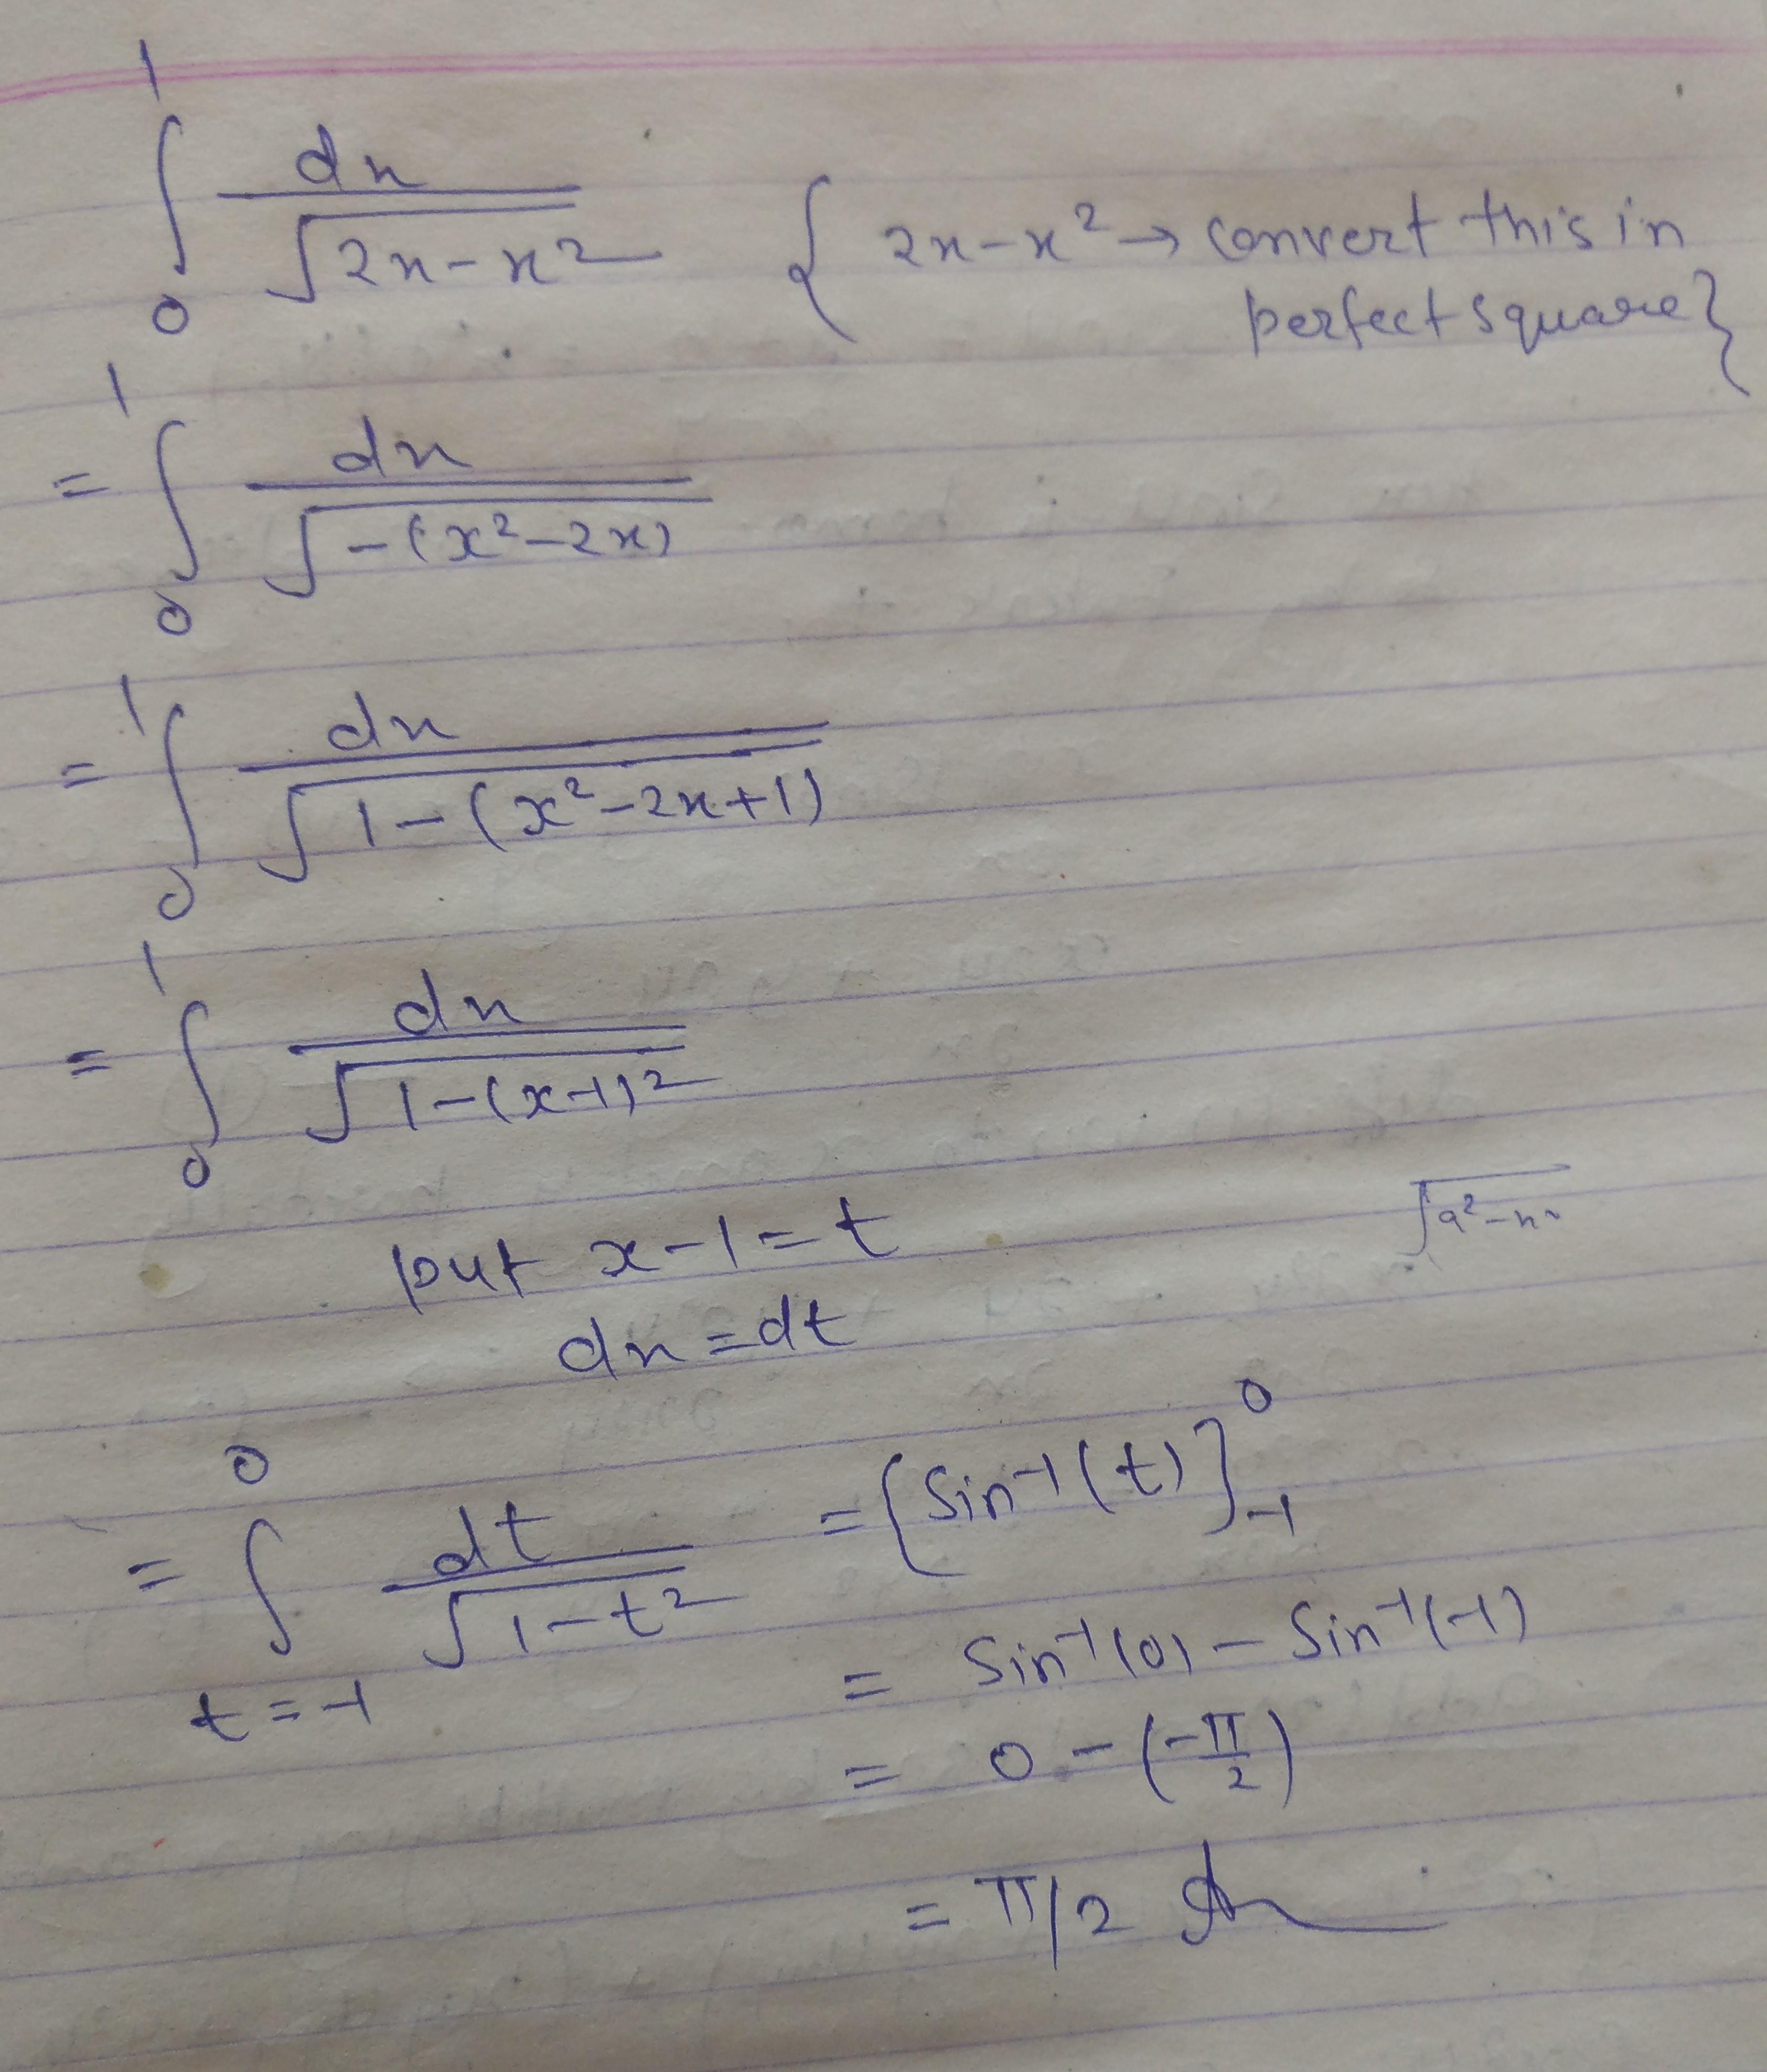 ∫₀¹ dx/√(2x-x²) { 2x-x² → convert this in
perfect square }
= ∫₀¹ dx/√(-(x²-2x))
= ∫₀¹ dx/√(1-(x²-2x+1))
= ∫₀¹ dx/√(1-(x-1)²)
put x-1=t √a²-x²
dx=dt
= ∫ₜ₌₋₁⁰ dt/√(1-t²) = {Sin⁻¹(t)]₋₁⁰
= Sin⁻¹(0) - Sin⁻¹(-1)
= 0 - (-π/2)
= π/2